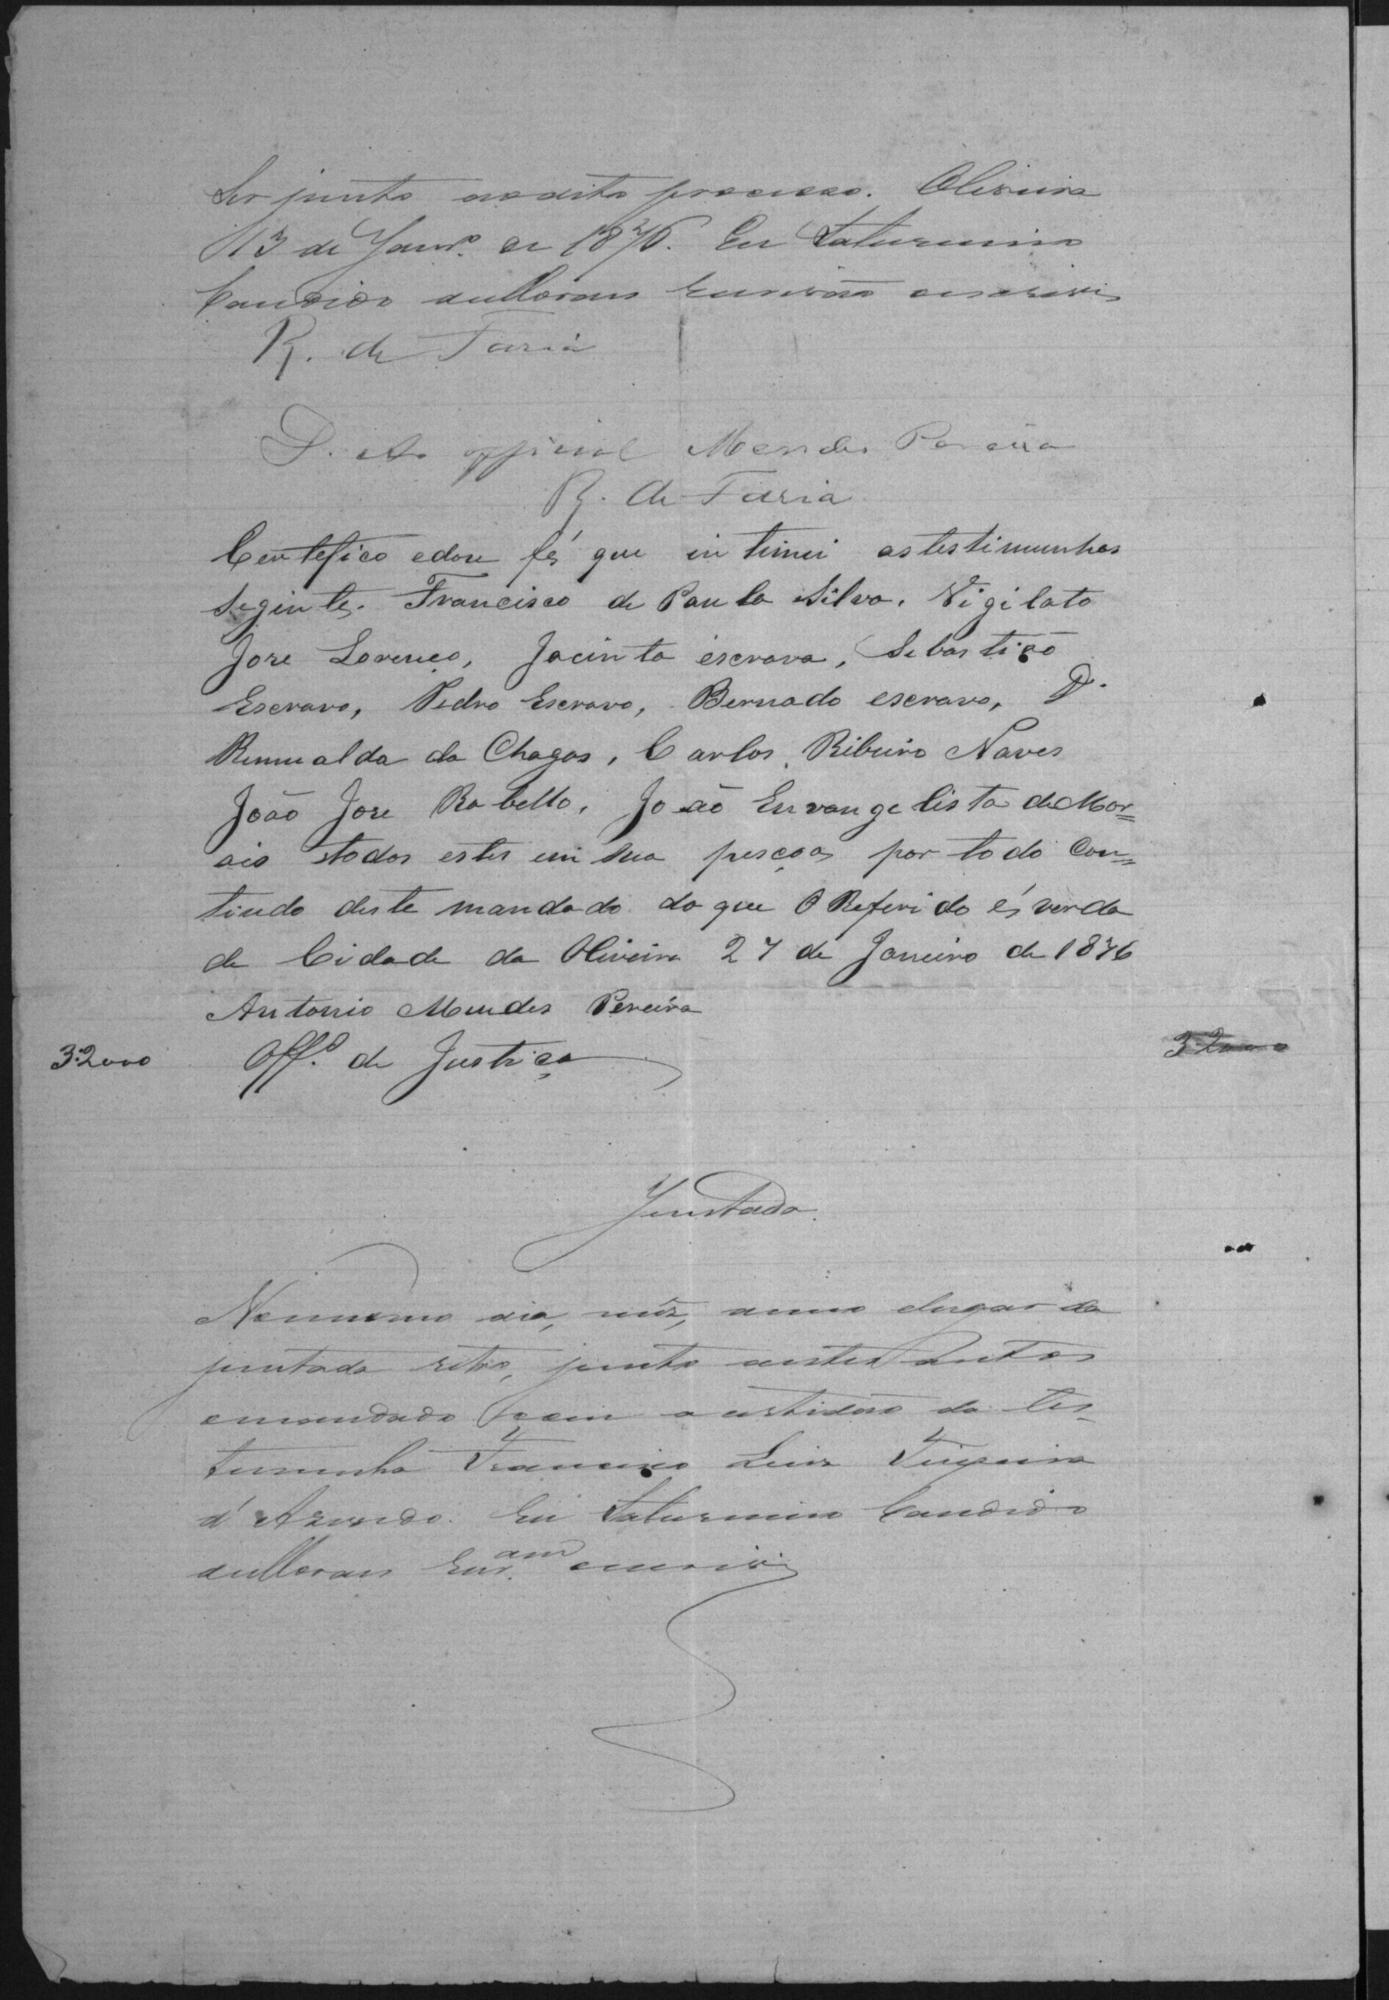 ser junto ao dito processo. Oliveira
13 de Janrº. de 1876. Eu Saturnino
Candido de Moraes Escrivão escrevi
R. de Faria
D. Ao official Mendes Pereira
R. de Faria
Certefico e dou fé que in timei as testimunhas
seginte. Francisco de Paula Silva, Vigilato
Jose Lorenço, Jacinta escrava, Sebastião
Escravo, Pedro Escravo, Bernado escravo, D.
Rumualda da Chagas, Carlos Ribeiro Naves
João Jose Rabello, João Euvangelista de Mor=
ais etodos estes em sua pesçoas por todo Con=
tiudo deste mandado do que O Referido és verda
de Cidade da Oliveira 27 de Janeiro de 1876
Antonio Mendes Pereira
3:2000 Offº. de Justiça 3:2000
Juntada
No mesmo dia, mêz, anno e lugar da
juntada retro, junto a estes autos
o mandado com a certidão da tes-
timunha Francisco Luiz Teixeira
d'Azevedo. Eu Saturnino Candido
de Moraes Escr.am escrevi